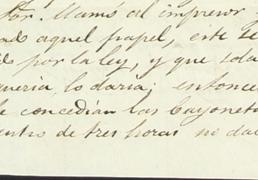 tor. Llamó al impresor y
aquel papel, este se
por la ley, y que sola
queria lo daria; entonce
le concedian las bayoneta
entro de tres horas no da